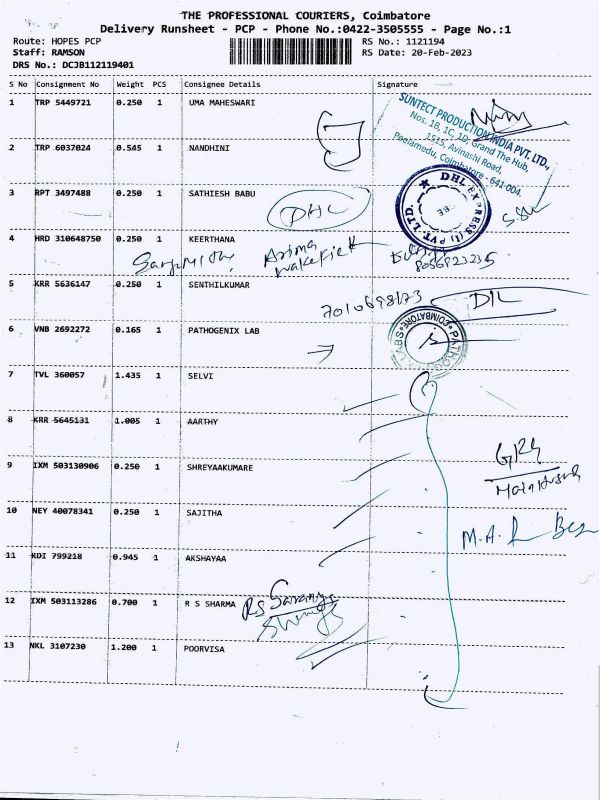 THE PROFESSIONAL COURIERS, Coimbatore
Delivery Runsheet - PCP - Phone No.:0422-3505555 - Page No.:1
Route: HOPES PCP RS No.: 1121194
Staff: RAMSON RS Date: 20-Feb-2023
DRS No.: DCJB112119401
S No Consignment No Weight PCS Consignee Details Signature
1 TRP 5449721 0.250 1 UMA MAHESWARI
SUNTECT PRODUCTION INDIA PVT. LTD.,
Nos. 1B, 1C, 1D, Grand The Hub,
1515, Avinashi Road,
Peelamedu, Coimbatore - 641 004.
2 TRP 6037024 0.545 1 NANDHINI
3 RPT 3497488 0.250 1 SATHIESH BABU
DHL
DHL EXPRESS (I) PVT. LTD.
4 HRD 310648750 0.250 1 KEERTHANA
8056923235
5 KRR 5636147 0.250 1 SENTHILKUMAR
6 VNB 2692272 0.165 1 PATHOGENIX LAB
COIMBATORE
7 TVL 360057 1.435 1 SELVI
8 KRR 5645131 1.005 1 AARTHY
9 IXM 503130906 0.250 1 SHREYAAKUMARE
10 NEY 40078341 0.250 1 SAJITHA
11 KDI 799218 0.945 1 AKSHAYAA
12 IXM 503113286 0.700 1 R S SHARMA RS Saranya
13 NKL 3107230 1.200 1 POORVISA